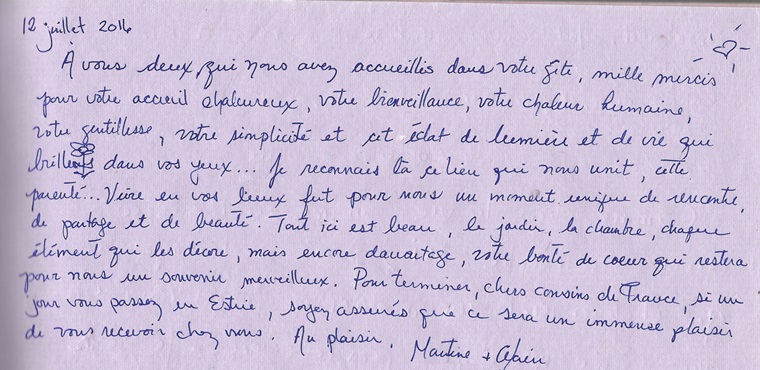 12 juillet 2016
À vous deux, qui nous avez accueillis dans votre gîte, mille mercis
pour votre accueil chaleureux, votre bienveillance, votre chaleur humaine,
votre gentillesse, votre simplicité et cet éclat de lumière et de vie qui
brillent dans vos yeux... Je reconnais là ce lien qui nous unit, cette
parenté... Vivre en vos lieux fut pour nous un moment unique de rencontre,
de partage et de beauté. Tout ici est beau, le jardin, la chambre, chaque
élément qui les décore, mais encore davantage, votre bonté de coeur qui restera
pour nous un souvenir merveilleux. Pour terminer, chers cousins de France, si un
jour vous passez en Estrie, soyez assurés que ce sera un immense plaisir
de vous recevoir chez nous. Au plaisir. Martine + Alain